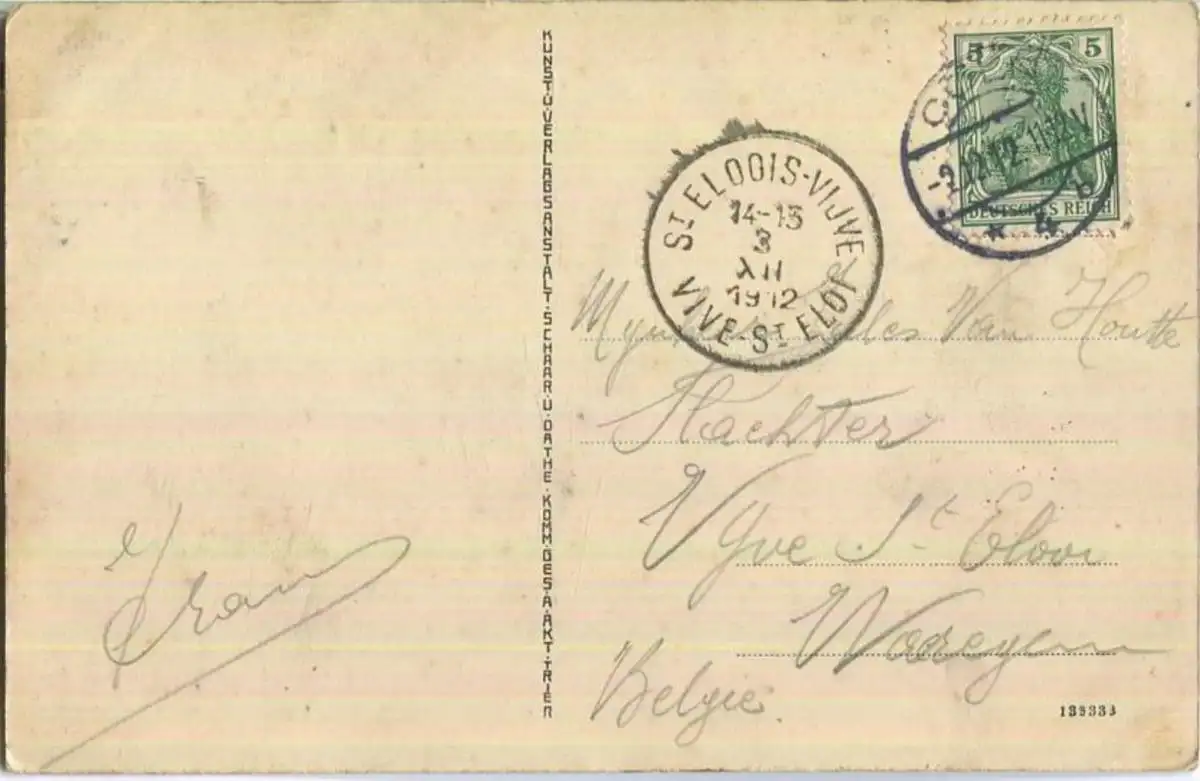 KUNST-U-VERLAGSANSTALT-SCHAAR U. DATHE-KOMM.GES.A.AKT.TRIER
5 5
DEUTSCHES REICH
-2.12.12.11-12V
* 4 b
ST ELOOIS-VIJVE
14-15
3
XII
1912
VIVE-ST ELOI
Van Houtte
Vyve St Elooi
Waregem
Belgie.
135333